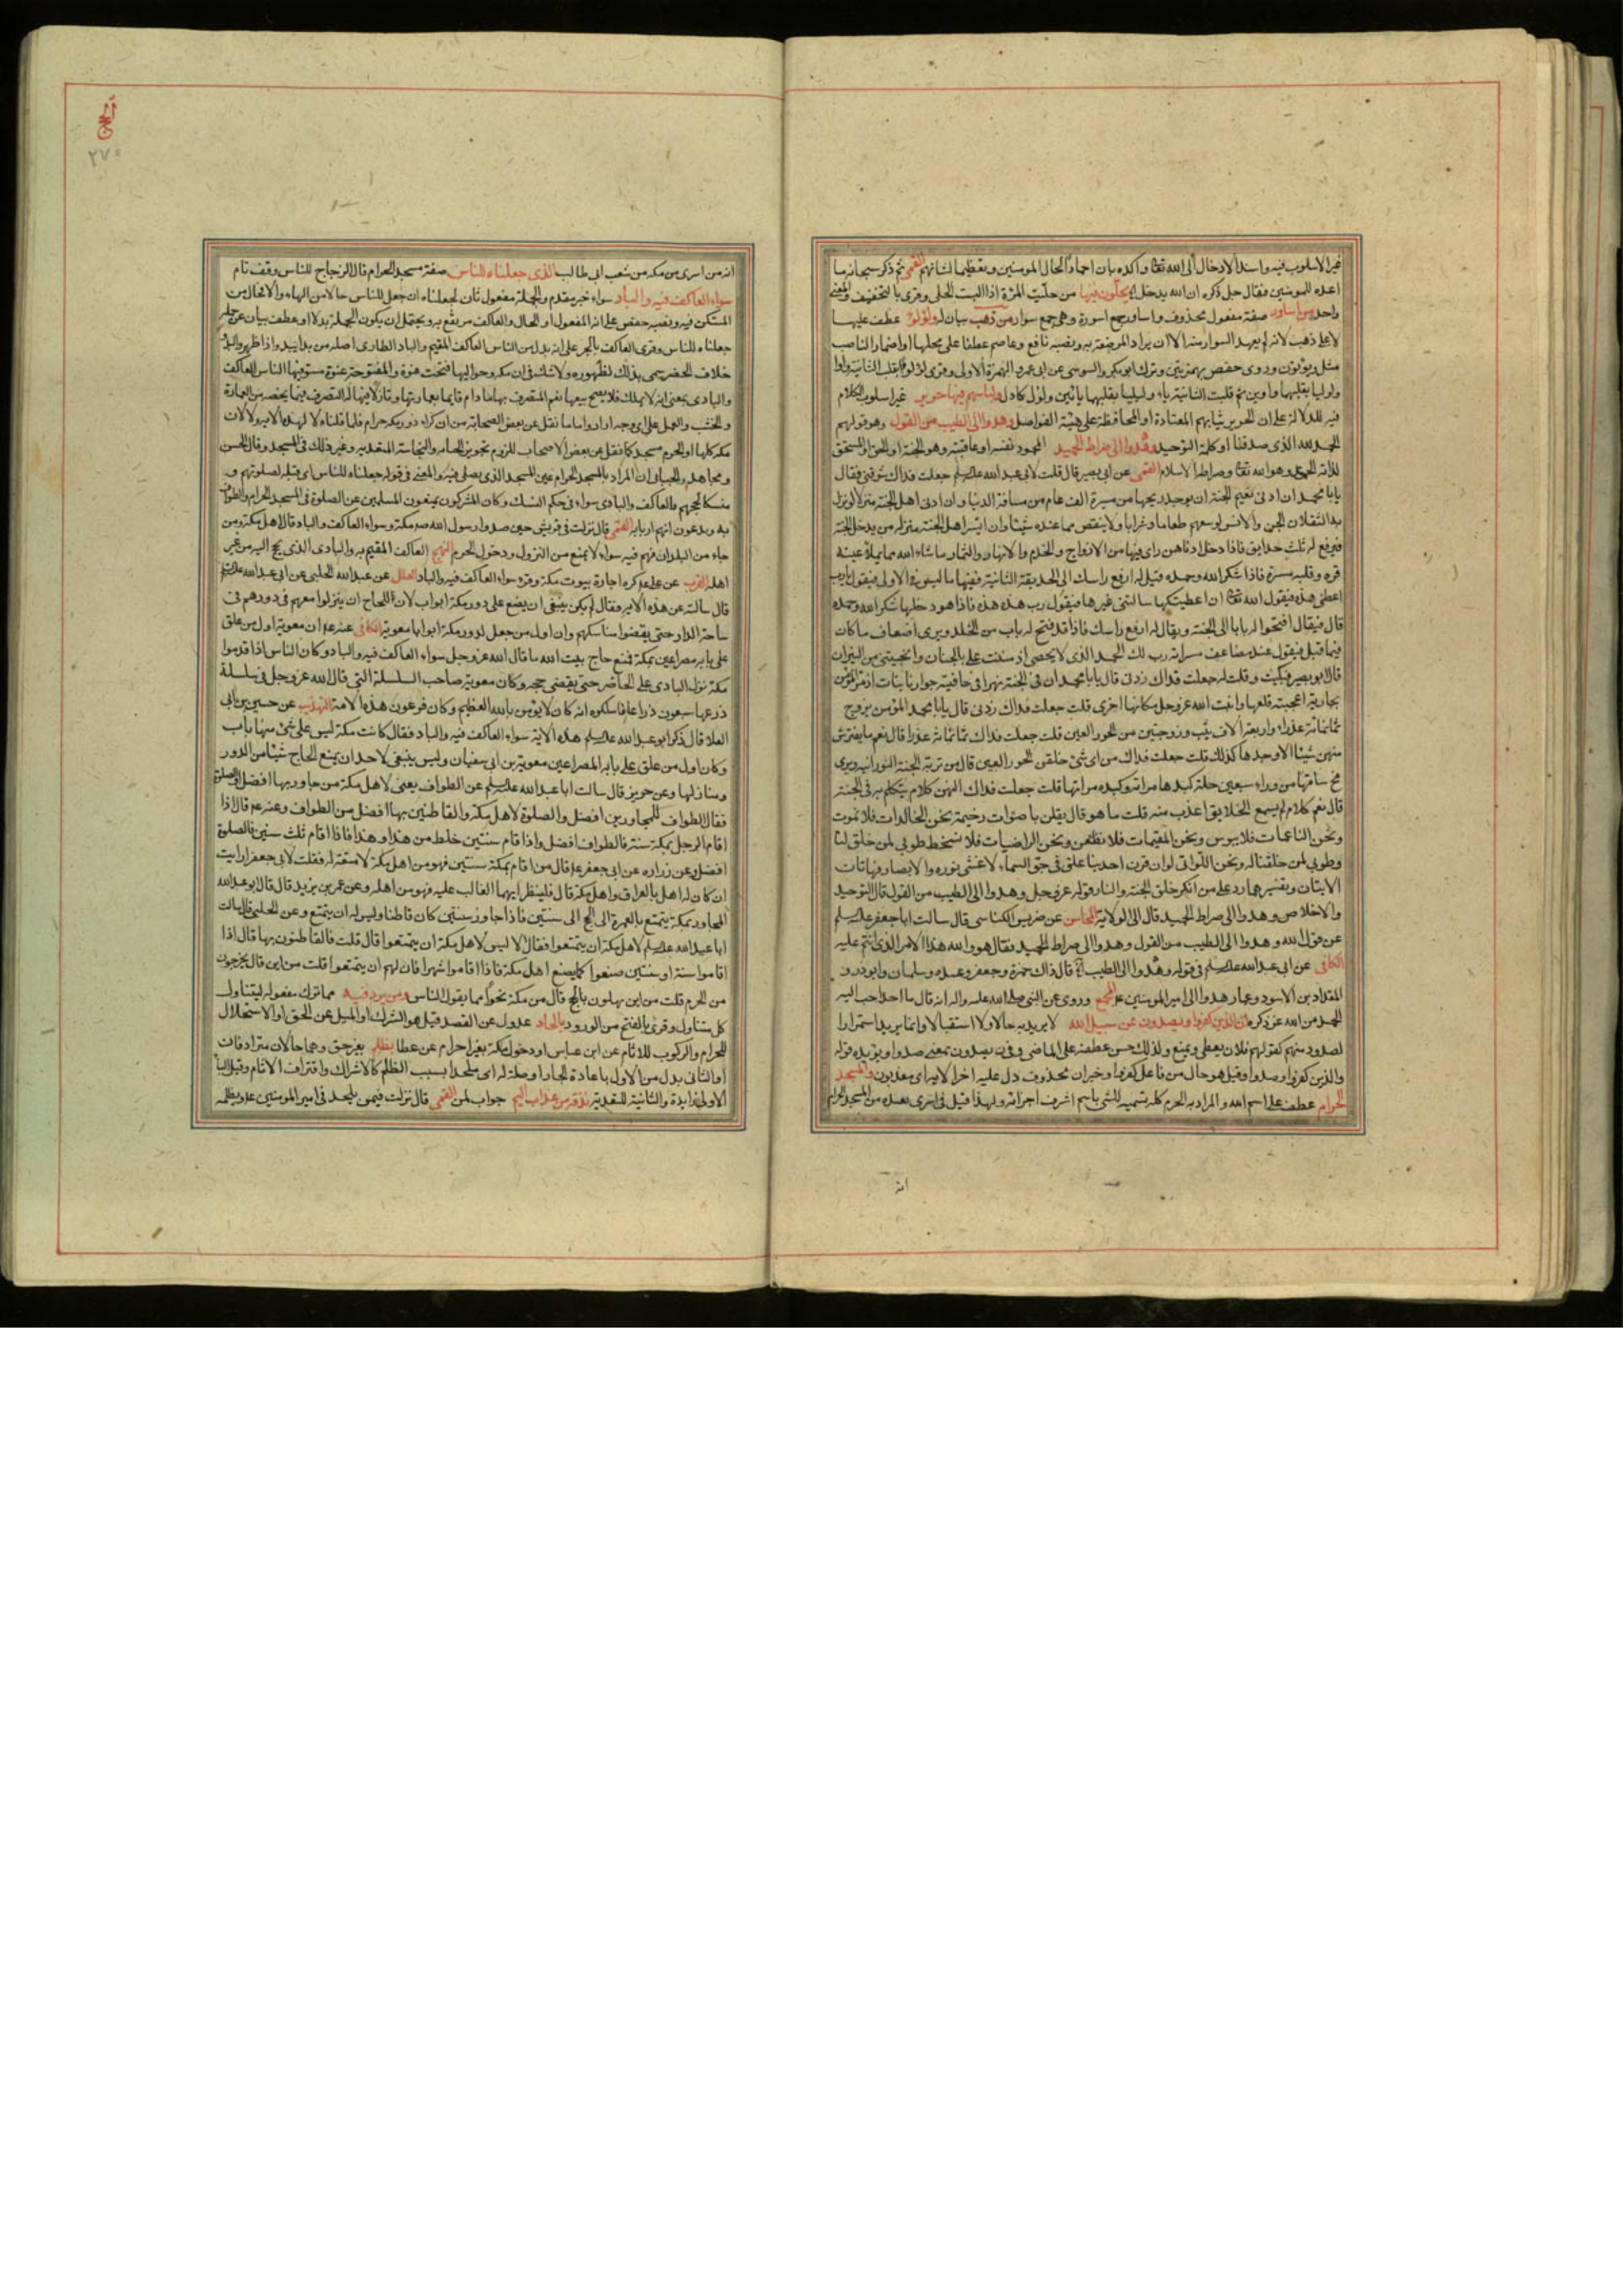 غير الاسلوب فيه واسند الادخال الى الله تعالى واكده بان احمادا لحال المومنين وتعظيما لشانهم القمي ثم ذكر سبحانه ما
اعده للمومنين فقال جل ذكره ان الله يدخل يحلون فيها من حليت المرأة اذا البست الحلى وقرئ بالتخفيف والمعنى
واحد من اساور صفة مفعول محذوف واساور جمع اسورة وهى جمع سوار من ذهب بيان له ولؤلؤا عطف عليها
لا على ذهب لانه لم يعهد السوار منه الا ان يراد المرصعة به ونصبه نافع وعاصم عطفا على محلها او اضمار الناصب
مثل ويؤتون وروى حفص بهمزتين وترك ابوبكر والسوسى عن ابى عمرو الهمزة الاولى وقرئ لؤلوا بقلب الثانية واوا
ولوليا بقلبهما واوين ثم قلبت الثانية ياء وليليا بقلبهما يائين ولول كادل ولباسهم فيها حرير غير اسلوب الكلام
فيه للدلالة على ان الحرير ثيابهم المعتادة او المحافظة على هيئة الفواصل وهدوا الى الطيب من القول وهو قولهم
الحمد لله الذى صدقنا او كلمة التوحيد وهدوا الى صراط الحميد المحمود نفسه او عاقبته وهو الجنة او الحق او المستحق
لذاته الحمد وهو الله تعالى وصراطه الاسلام القمى عن ابى بصير قال قلت لابى عبد الله عليه السلام جعلت فداك شوقنى فقال
يابا محمد ان ادنى نعيم الجنة ان يوجد ريحها من مسيرة الف عام من مسافة الدنيا وان ادنى اهل الجنة منزلا لو نزل
به الثقلان الجن والانس لوسعهم طعاما وشرابا ولا ينقص مما عنده شيئا وان ايسر اهل الجنة منزلة من يدخل الجنة
فيرفع له ثلث حدايق فاذا دخل ادناهن راى فيها من الازواج والخدم والانهار والثمار ماشاء الله مما يملأ عينه
قرة وقلبه مسرة فاذا شكر الله وحمده قيل له ارفع راسك الى الحديقة الثانية ففيها ما ليس فى الاولى فيقول يا رب
اعطنى هذه فيقول الله تعالى ان اعطيتكها سالتنى غيرها فيقول رب هذه هذه فاذا هو دخلها شكر الله وحمده
قال فيقال افتحوا له بابا الى الجنة ويقال له ارفع راسك فاذا قد فتح له باب من الخلد ويرى اضعاف ما كان
فيما قبل فيقول عند مضاعف مسراته رب لك الحمد الذى لا يحصى اذ مننت على بالجنان وانجيتنى من النيران
قال ابو بصير فبكيت وقلت له جعلت فداك زدنى قال يابا محمد ان فى الجنة نهرا فى حافتيه جوار نابتات اذا مر المؤمن
بجارية اعجبته قلعها وانبت الله عز وجل مكانها اخرى قلت جعلت فداك زدنى قال يابا محمد المؤمن يزوج
ثمانمائة عذراء واربعة الاف ثيب وزوجتين من الحور العين قلت جعلت فداك ثمانمائة عذراء قال نعم ما يفترش
منهن شيئا الا وجدها كذلك قلت جعلت فداك من اى شئ خلقن الحور العين قال من تربة الجنة النورانية ويرى
مخ ساقها من وراء سبعين حلة كبدها مراته وكبده مراتها قلت جعلت فداك الهن كلام يتكلمن به فى الجنة
قال نعم كلام لم يسمع الخلايق اعذب منه قلت ما هو قال يقلن باصوات رخيمة نحن الخالدات فلا نموت
ونحن الناعمات فلا نبوس ونحن المقيمات فلا نظعن ونحن الراضيات فلا نسخط طوبى لمن خلق لنا
وطوبى لمن خلقنا له ونحن اللواتى لو ان قرن احدينا علق فى جو السماء لاغشى نوره الابصار فهاتان
الايتان وتفسيرهما رد على من انكر خلق الجنة والنار قوله عز وجل وهدوا الى الطيب من القول قال التوحيد
والاخلاص وهدوا الى صراط الحميد قال الى الولاية المحاسن عن ضريس الكناسى قال سالت ابا جعفر عليه السلام
عن قول الله وهدوا الى الطيب من القول وهدوا الى صراط الحميد فقال هو والله هذا الامر الذى انتم عليه
الكافى عن ابى عبد الله عليه السلام فى قوله وهدوا الى الطيب قال ذاك حمزة وجعفر وعبيده وسلمان وابوذر و
المقداد بن الاسود وعمار هدوا الى امير المومنين المجمع وروى عن النبى صلى الله عليه واله انه قال ما احد احب اليه
الحمد من الله عز ذكره ان الذين كفروا ويصدون عن سبيل الله لا يريد به حالا ولا استقبالا وانما يريد استمرار
لصدود منهم كقولهم فلان يعطى ويمنع ولذلك حسن عطفه على الماضى يصدون بمعنى صدوا ويؤيده قوله
والذين كفروا وصدوا وقيل هو حال من فاعل كفروا وخبر ان محذوف دل عليه اخر الاية اى معذبون والمسجد
الحرام عطف على اسم الله والمراد به الحرم كله تسمية للشئ باسم اشرف اجزائه ولهذا قيل فى اسرى بعبده من المسجد الحرام
انه
الحج
٢٧٠
انه من اسرى من مكه من شعب ابى طالب الذى جعلناه للناس صفة مسجد الحرام قال الزجاج للناس وقف تام
سواء العاكف فيه والباد سواء خبر مقدم والجملة مفعول ثان لجعلناه ان جعل للناس حالا من الهاء والا فحال من
المستكن فيه ونصبه حفص على انه المفعول او الحال والعاكف مرتفع به ويحتمل ان يكون الجملة بدلا او عطف بيان عن جملة
جعلناه للناس وقرئ العاكف بالجر على انه بدل من الناس العاكف المقيم والباد الطارى اصله من بدا يبدو اذا ظهر والبدو
خلاف الحضر سمى بذلك لظهوره ولا شك فى ان مكه وحواليها فتحت عنوة والمفتوحة عنوة مستو فيها الناس العاكف
والبادى بمعنى انه لا يملك فلا يصح بيعها نعم المتصرف بها ما دام قايما بعمارتها التصرف فيما يخصه من العمارة
والخشب والعمل على اى وجه اراد واما ما نقل عن بعض الصحابه من ان كراء دور مكه حرام فلما قلناه لا لهذه الاية ولا لان
مكه كلها او الحرم مسجد كما نقل عن بعض الاصحاب للزوم تجويز الجماع والنجاسة المتعديه وغير ذلك فى المسجد وقال الحسن
ومجاهد والجبائى ان المراد بالمسجد الحرام عين المسجد الذى يصلى فيه والمعنى فى قوله جعلناه للناس اى قبلة لصلوتهم و
منسكا لحجهم والعاكف والبادى سواء فى حكم النسك وكان المشركون يمنعون المسلمين عن الصلوة فى المسجد الحرام والطواف
به ويدعون انهم اربابه القمى قال نزلت فى قريش حين صدوا رسول الله عن مكة وسواء العاكف والباد قال اهل مكة ومن
جاء من البلدان فهم فيه سواء لا يمنع من النزول ودخول الحرم النهج العاكف المقيم به والبادى الذى يحج اليه من غير
اهله القرب عن على كره اجارة بيوت مكة وقرء سواء العاكف فيه والباد العلل عن عبد الله الحلبى عن ابى عبد الله عليه السلام
قال سالته عن هذه الاية فقال لم يكن ينبغى ان يضع على دور مكة ابواب لان للحاج ان ينزلوا معهم فى دورهم فى
ساحة الدار حتى يقضوا مناسكهم وان اول من جعل لدور مكة ابوابا معوية الكافى عنه ان معوية اول من علق
على بابه مصراعين بمكة فمنع حاج بيت الله ما قال الله عز وجل سواء العاكف فيه والباد وكان الناس اذا قدموا
مكة نزل البادى على الحاضر حتى يقضى حجه وكان معوية صاحب السلسلة التى قال الله عز وجل فى سلسلة
ذرعها سبعون ذراعا فاسلكوه انه كان لا يؤمن بالله العظيم وكان فرعون هذه الامة التهذيب عن حسين بن ابى
العلا قال ذكر ابو عبد الله عليه السلام هذه الاية سواء العاكف فيه والباد فقال كانت مكة ليس على شئ منها باب
وكان اول من علق على بابه المصراعين معوية بن ابى سفيان وليس ينبغى لاحد ان يمنع الحاج شيئا من الدور
ومنازلها وعن حريز قال سالت ابا عبد الله عليه السلام عن الطواف بعنى لاهل مكة من جاور بها افضل او الصلوة
فقال الطواف للمجاورين افضل والصلوة لاهل مكة والقاطنين بها افضل من الطواف وعنه قال اذا
اقام الرجل بمكة سنة فالطواف افضل واذا اقام سنتين خلط من هذا وهذا فاذا اقام ثلث سنين فالصلوة
افضل وعن زراره عن ابى جعفر قال من اقام بمكة سنتين فهو من اهل مكة لا متعة له فقلت لابى جعفر ارايت
ان كان له اهل بالعراق واهل مكة قال فلينظر ايهما الغالب عليه فهو من اهله وعن عمر بن يزيد قال قال ابو عبد الله
المجاور بمكة يتمتع بالعمرة الى الحج الى سنتين فاذا جاوز سنتين كان قاطنا وليس له ان يتمتع وعن الحلبى قال سالت
ابا عبد الله عليه السلام لاهل مكة ان يتمتعوا فقال لا ليس لاهل مكة ان يتمتعوا قال قلت فالقاطنون بها قال اذا
اقاموا سنة او سنتين صنعوا كما يصنع اهل مكة فاذا اقاموا شهرا فان لهم ان يتمتعوا قلت من اين قال يخرجون
من الحرم قلت من اين يهلون بالحج قال من مكة نحوا مما يقول الناس ومن يرد فيه مما ترك مفعوله ليتناول
كل متناول وقرئ بالفتح من الورود بالحاد عدول عن القصد قيل هو الشرك او الميل عن الحق او الاستحلال
للحرام والركوب للاثام عن ابن عباس او دخول مكة بغير احرام عن عطا بظلم بغير حق وهما حالان مترادفات
او الثانى بدل من الاول باعادة الجار او صلة له اى ملحدا بسبب الظلم كالاشراك واقتراف الاثام وقيل الباء
الاولى زايدة والثانية للتعدية نذقه من عذاب اليم جواب لمن القمى قال نزلت فيمن يلحد فى امير المومنين ويظلمه